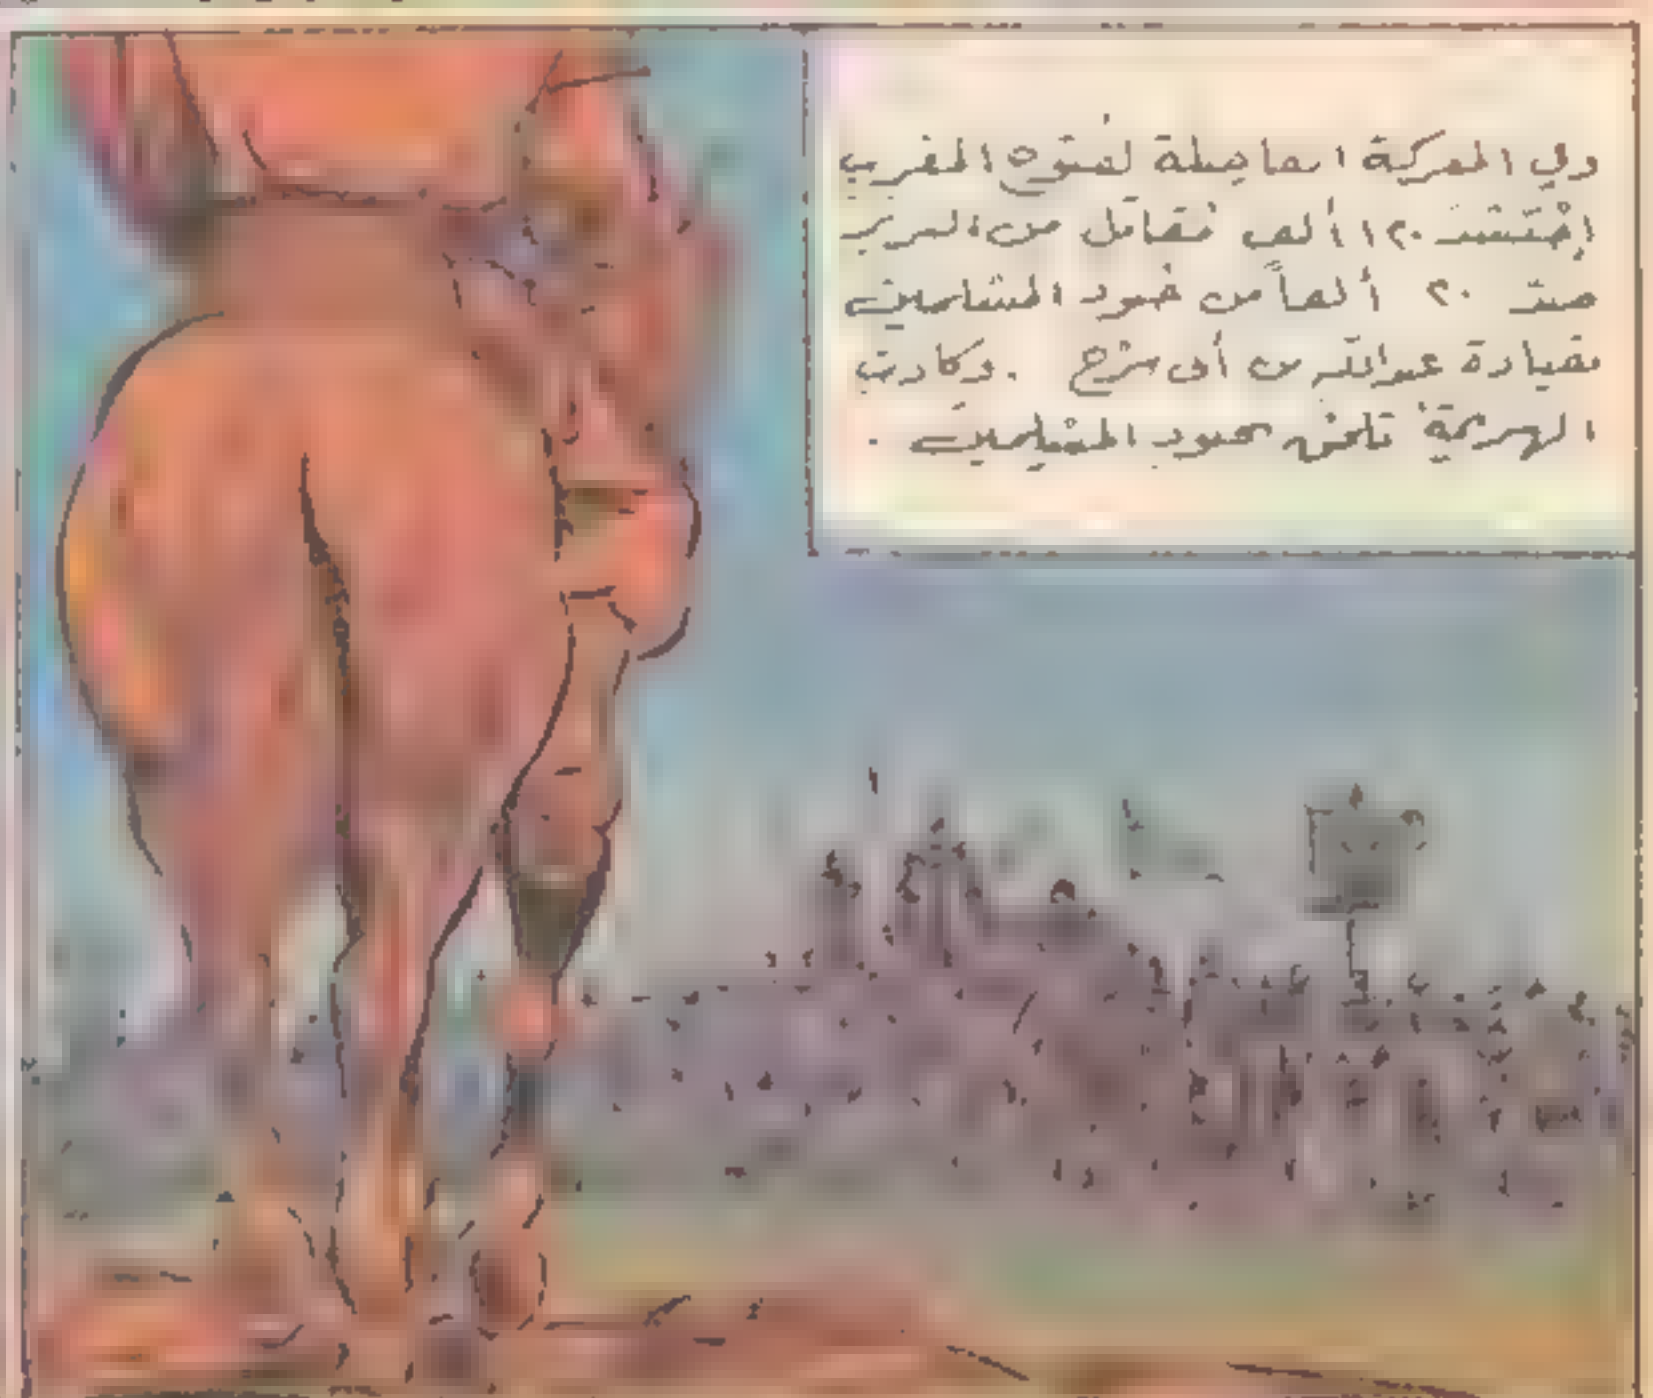 وفي المعركة الفاصلة لفتوح المغرب
احتشد ١٢٠ ألف مقاتل من البربر
ضد ٢٠ ألفاً من جنود المسلمين
بقيادة عبدالله بن أبى سرح . وكادت
الهزيمة تلحق بجنود المسلمين .